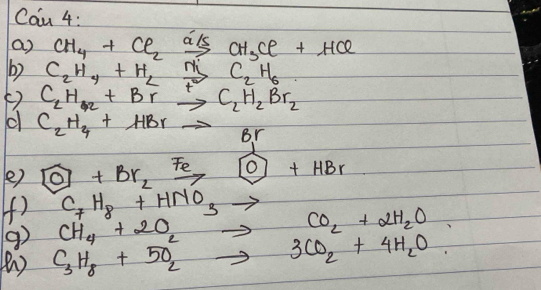 Câu 4:
a) CH₄ + Cl₂ →(á/s) CH₃Cl + HCl
b) C₂H₄ + H₂ →(Ni, t°) C₂H₆.
c) C₂H₂ + Br → C₂H₂Br₂
d) C₂H₄ + HBr →
Br
e) + Br₂ →(Fe) + HBr
f) C₇H₈ + HNO₃ →
g) CH₄ + 2O₂ → CO₂ + 2H₂O.
h) C₃H₈ + 5O₂ → 3CO₂ + 4H₂O.